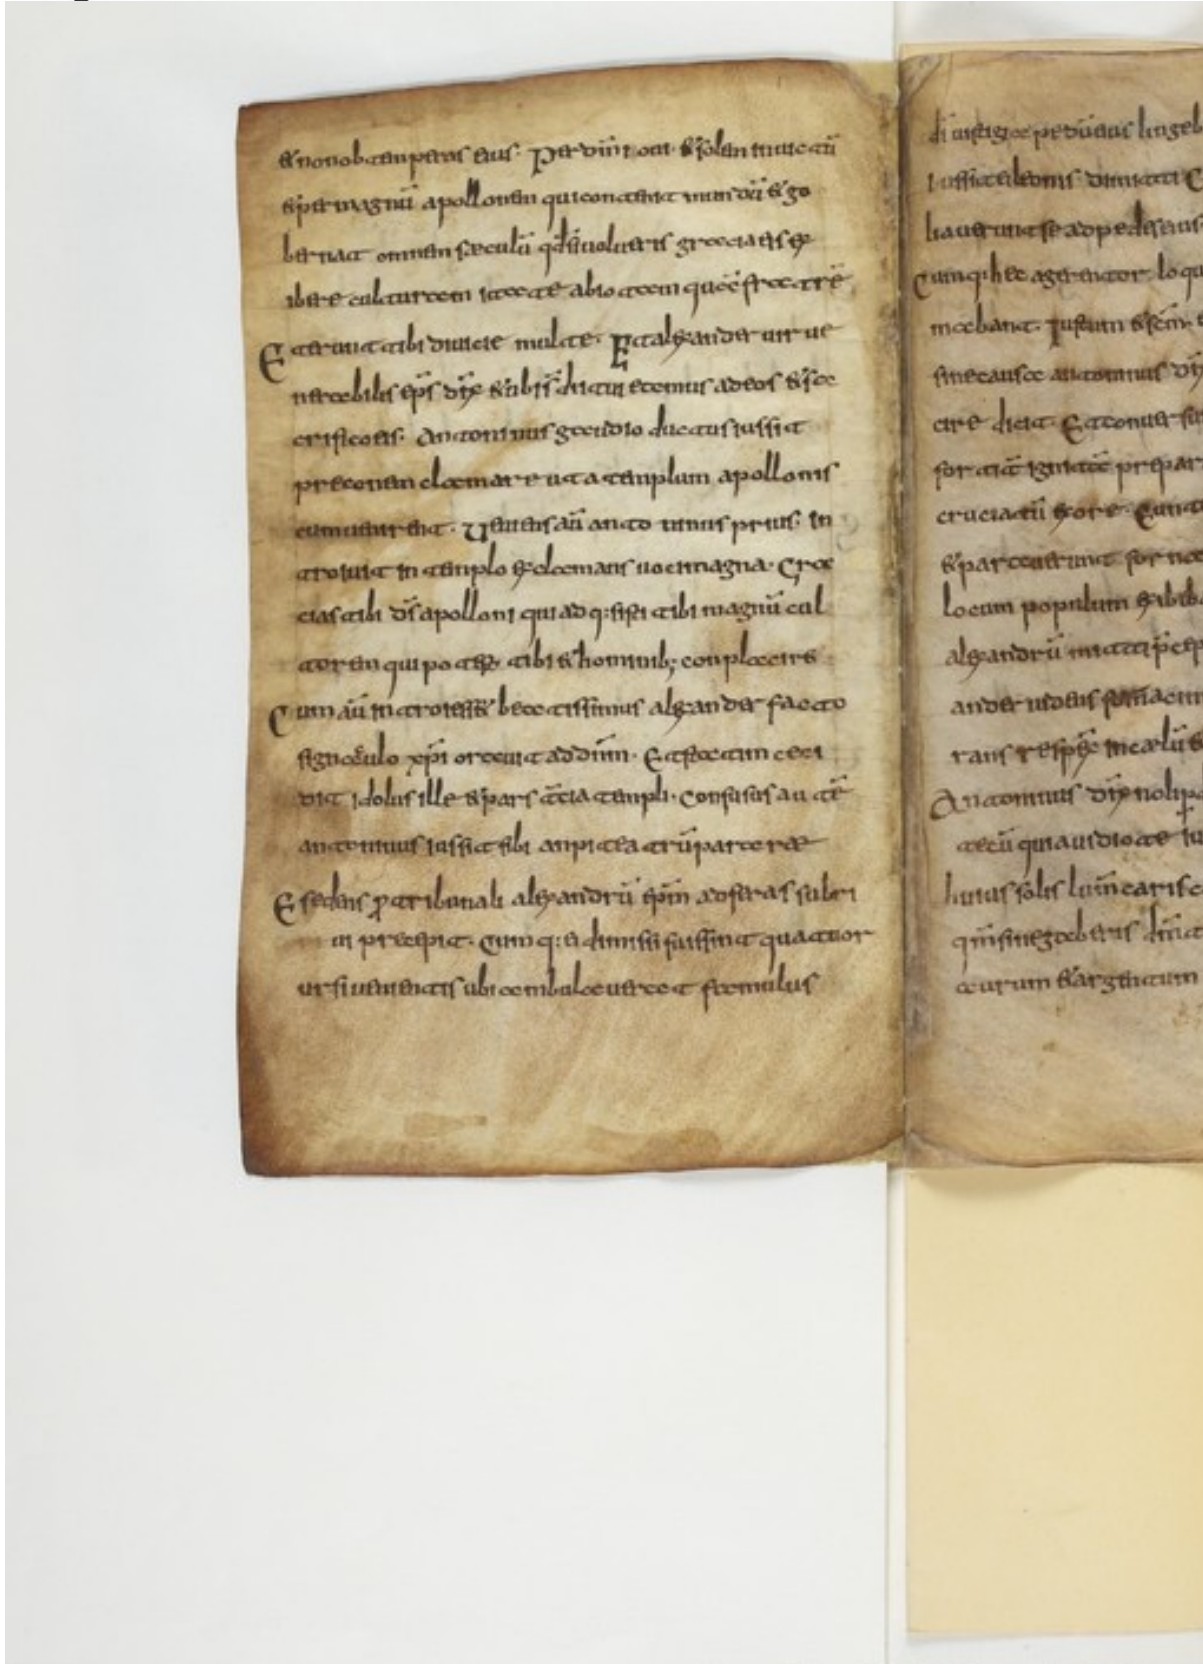 & non obtemperas eius. Per dim͞ iou. & solem inuictū
& per magnū apollonem qui continet mundū & go
bernat omnem sæculū qd̄ si uolueris graecia eis ex
ibere culturam itaque abiotam quasi fratrē
Et erunt tibi diuicie multe. Et alexander uir ue
nerabilis ep̄s dix̄ & ubi s̄ dii tui eamus ad eos & sa
crifico eis. Antoninus gaudio ductus iussit
preconem clamare ut a templum apollonis
conuenirent. Ueniens aū antoninus prius. In
troiuit in templo exclamans uoce magna. Gra
cias tibi dš apolloni qui adq:sisti tibi magnū cul
torem qui potest. tibi & hominib; conplacire
Cum aū introiss& beatissimus alexander facto
signaculo xp̄i orauit ad dn̄m. Et statim ceci
dit idolus ille & pars t̄cia templi. Confusus autē
antoninus iussit sibi anpiteatrū parare
E sedens p̱ tribunali alexandrū ep̄m ad feras subri
gi precepit. Cumq: ei dimissi fuissent quattuor
ursi uenientis ubi ambulauerat famulus
di uestigia pedū eius lingeb
Iussit & leonis dimitti
liauerunt se ad pedes eius.
Cumq: hec agerentor. loqu
nicebant. Iustum & sc̄m.
sine causa antoninus dix̄
cire dicit. Et conuersus
for titē ignitā prepar
cruciatū
& parauerunt fornac
locum populum exibib
alexandrū mitti p̄cep
ander uidens fornacim
rans respex̄ in caelū &
Antoninus dix̄ noli p
tecū quia uidio te iu
huius solis lum̄ caris
qm̄ si negaberis
aurum & argentum